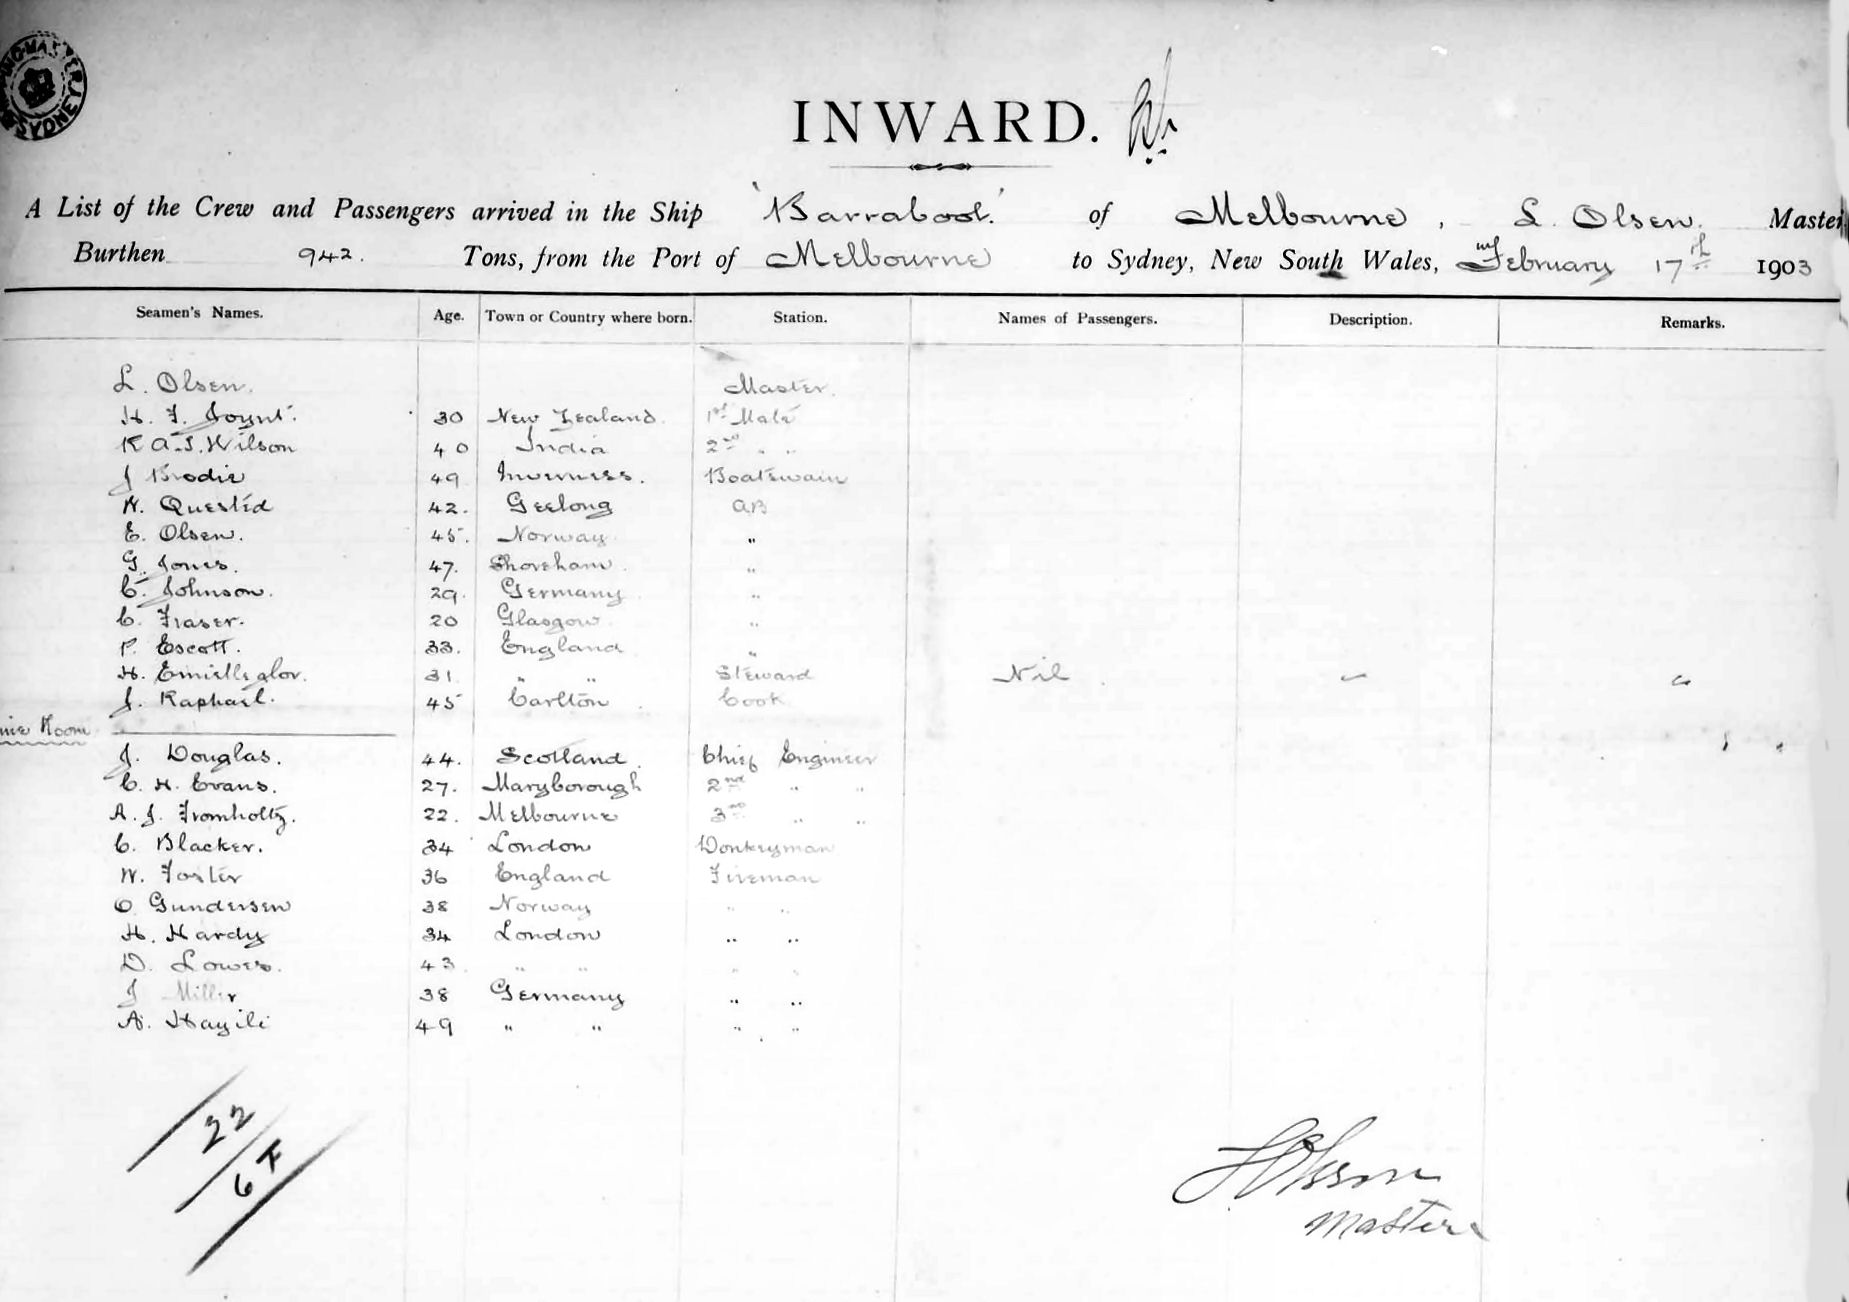 SYDNEY
INWARD.
A List of the Crew and Passengers arrived in the Ship 'Barrabool.' of Melbourne, L. Olsen. Master
Burthen 942. Tons, from the Port of Melbourne to Sydney, New South Wales, February 17th 1903
Seamen's Names. Age. Town or Country where born. Station. Names of Passengers. Description. Remarks.
L. Olsen. Master.
H. F. Joynt. 30 New Zealand. 1st Mate
K A. J. Wilson 40 India 2nd " "
J Brodie 49 Inverness. Boatswain
W. Quested 42. Geelong AB
E. Olsen. 45. Norway "
G. Jones. 47. Shoreham. "
C. Johnson. 29. Germany "
C. Fraser. 20 Glasgow. "
P. Escott. 33. England "
H. 31. " " Steward Nil " "
J. Raphael. 45 Carlton Cook
Room
J. Douglas. 44. Scotland. Chief Engineer
C. H. Evans. 27. Maryborough 2nd " "
A. J. Fromholtz. 22. Melbourne 3rd " "
C. Blacker. 34 London Donkeyman
W. Foster 36 England Fireman
O Gundersen 38 Norway " "
H. Hardy 34 London " "
D. Lowes. 43 " " " "
J Miller 38 Germany " "
A. 49 " " " "
22
6 F
L Olsen
Master